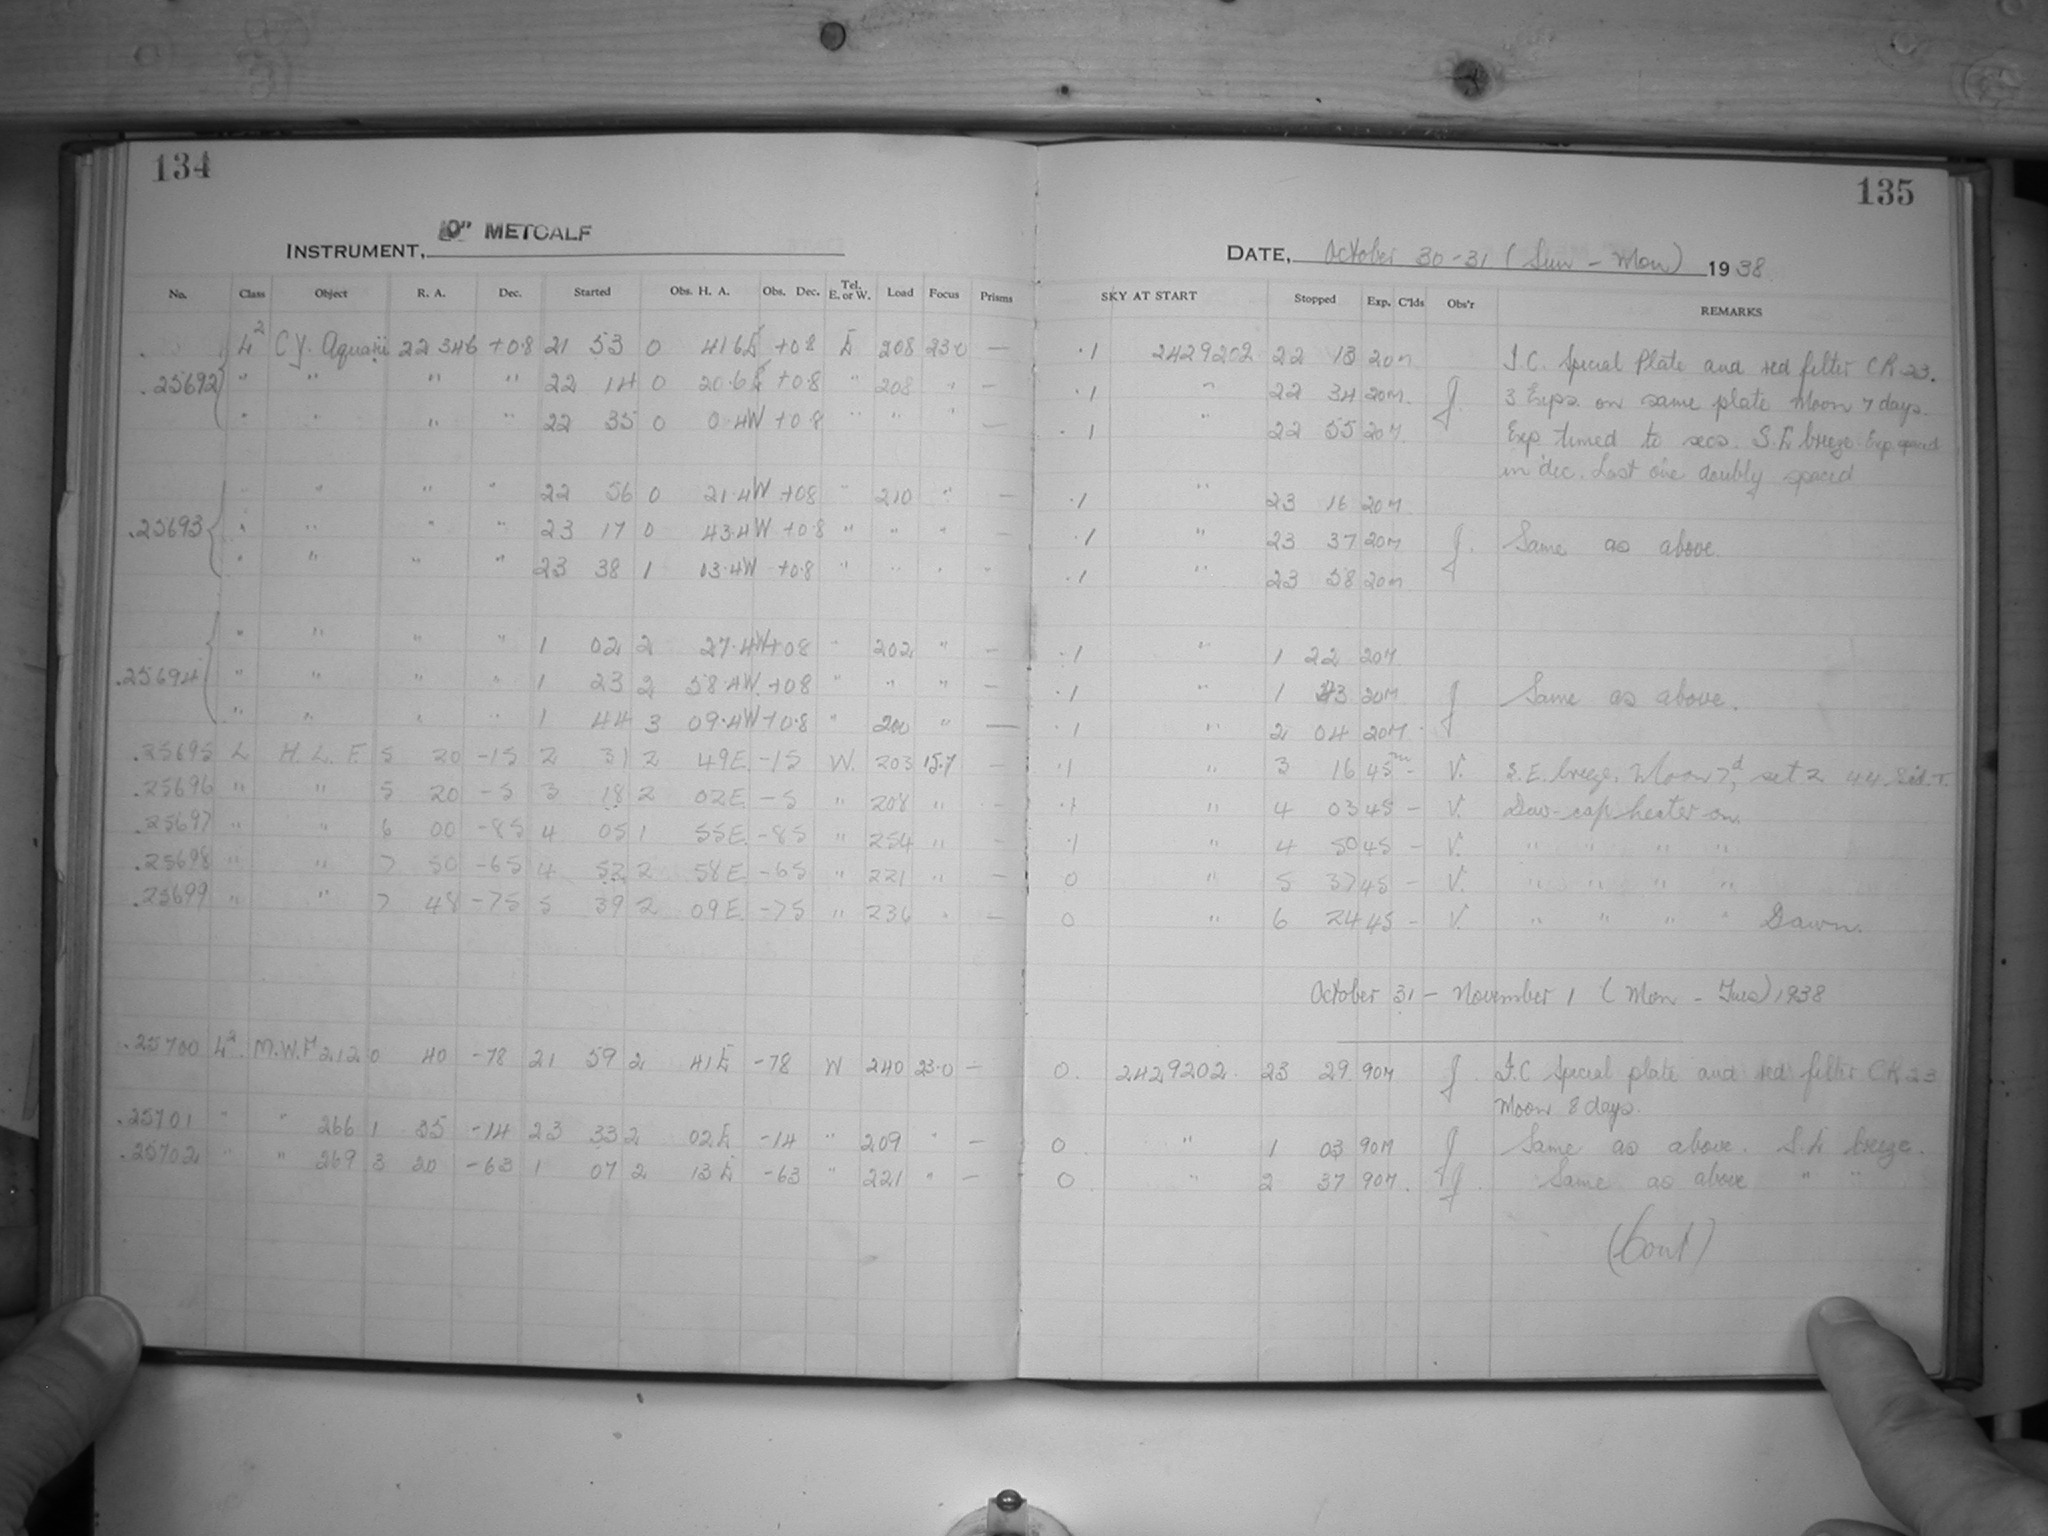 134
135
INSTRUMENT, 10" METCALF
DATE, October 30-31 (Sun - Mon) 1938
No. Class Object R. A. Dec. Started Obs. H. A. Obs. Dec. Tel. E. or W. Load Focus Prisms SKY AT START Stopped Exp. C'lds Obs'r REMARKS
L² CY. Aquarii 22 34.6 +0.8 21 53 0 41.6E +0.8 E 208 23.0 — .1 2429202 22 13 20m I.C. Special Plate and red filter CR 23.
.25692 " " " " 22 14 0 20.6E +0.8 " 208 " — .1 " 22 34 20m. J. 3 Exps. on same plate Moon 7 days.
" " " " 22 35 0 0.4W +0.8 " " " — .1 " 22 55 20m. Exp timed to secs. S.E breeze. Exp. spaced
in dec. Last one doubly spaced
" " " " 22 56 0 21.4W +0.8 " 210 " — .1 " 23 16 20m
.25693 " " " " 23 17 0 43.4W +0.8 " " " — .1 " 23 37 20m J. Same as above.
" " " " 23 38 1 03.4W +0.8 " " " " .1 " 23 58 20m
" " " " 1 02 2 27.4W +0.8 " 202 " — .1 " 1 22 20m
.25694 " " " " 1 23 2 58.4W. +0.8 " " " — .1 " 1 43 20m J Same as above.
" " " " 1 44 3 09.4W +0.8 " 200 " — .1 " 2 04 20m
.25695 L H. L. F. 5 20 -15 2 31 2 49E -15 W. 203 15.7 — .1 " 3 16 45m - V. S.E. breeze. Moon 7d, set 2 44
.25696 " " 5 20 -5 3 18 2 02E -5 " 208 " - .1 " 4 03 45 - V. Dew-cap heater on.
.25697 " " 6 00 -85 4 05 1 55E -85 " 254 " - .1 " 4 50 45 - V. " " " "
.25698 " " 7 50 -65 4 52 2 58E -65 " 221 " - 0 " 5 37 45 - V. " " " "
.25699 " " 7 48 -75 5 39 2 09E -75 " 236 " - 0 " 6 24 45 - V. " " " " Dawn.
October 31 - November 1 (Mon - Tues) 1938
.25700 L² M.W.F 212 0 40 -78 21 59 2 41E -78 W 240 23.0 — 0. 2429202. 23 29 90m J. I.C Special plate and red filter CR 23
Moon 8 days.
.25701 " " 266 1 35 -14 23 33 2 02E -14 " 209 " — 0 " 1 03 90m J Same as above. S.E breeze.
.25702 " " 269 3 20 -63 1 07 2 13E -63 " 221 " — 0 " 2 37 90m. J. Same as above " "
(Cont)